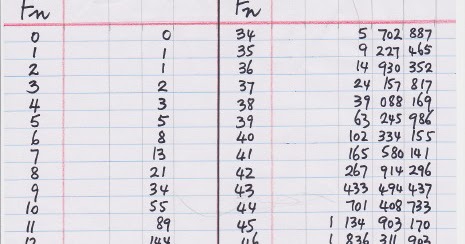 Fn Fn
0 0 34 5 702 887
1 1 35 9 227 465
2 1 36 14 930 352
3 2 37 24 157 817
4 3 38 39 088 169
5 5 39 63 245 986
6 8 40 102 334 155
7 13 41 165 580 141
8 21 42 267 914 296
9 34 43 433 494 437
10 55 44 701 408 733
11 89 45 1 134 903 170
12 144 46 1 836 311 903